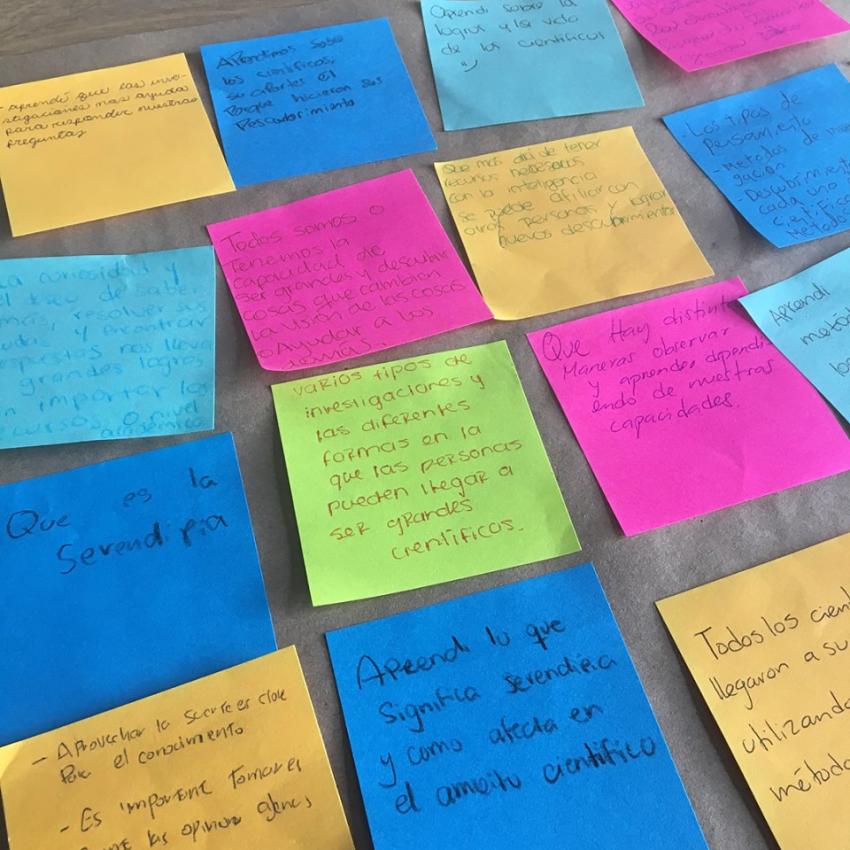 - aprendí que las inves-
tigaciones nos ayuda
para responder nuestras
preguntas
Aprendimos sobre
los científicos,
su aporte El
Porque hicieron sus
Descubrimiento
Aprendi sobre la
logros y la vida
de los científicos
- Los tipos de
pensamiento
- Metodos de
gación
- Descubrimient
cada uno
científic
Metodo
Que más allá de tener
recursos necesarios
con la inteligencia
se puede afiliar con
otras personas y lograr
nuevos descubrimientos
Todos somos o
Tenemos la
capacidad de
ser grandes y descubrir
cosas que cambian
la visión de las cosas
o Ayudar a los
demás.
La curiosidad y
el deseo de saber
más, resolver sus
dudas y encontrar
respuestas nos lleva
grandes logros
sin importar los
recursos, o nivel
académico
Varios tipos de
investigaciones y
las diferentes
formas en la
que las personas
pueden llegar a
ser grandes
científicos.
Que Hay distint
Maneras observar
y aprender dependi-
endo de nuestras
capacidades.
Aprendi
metód
los
Que es la
Serendipia
Aprendi lo que
significa serendipia
y como afecta en
el ambito científico
- Aprovechar la suerte es clave
para el conocimiento
- Es importante tomar en
las opinion ajenas
Todos los cien
llegaron a su
utilizando
método